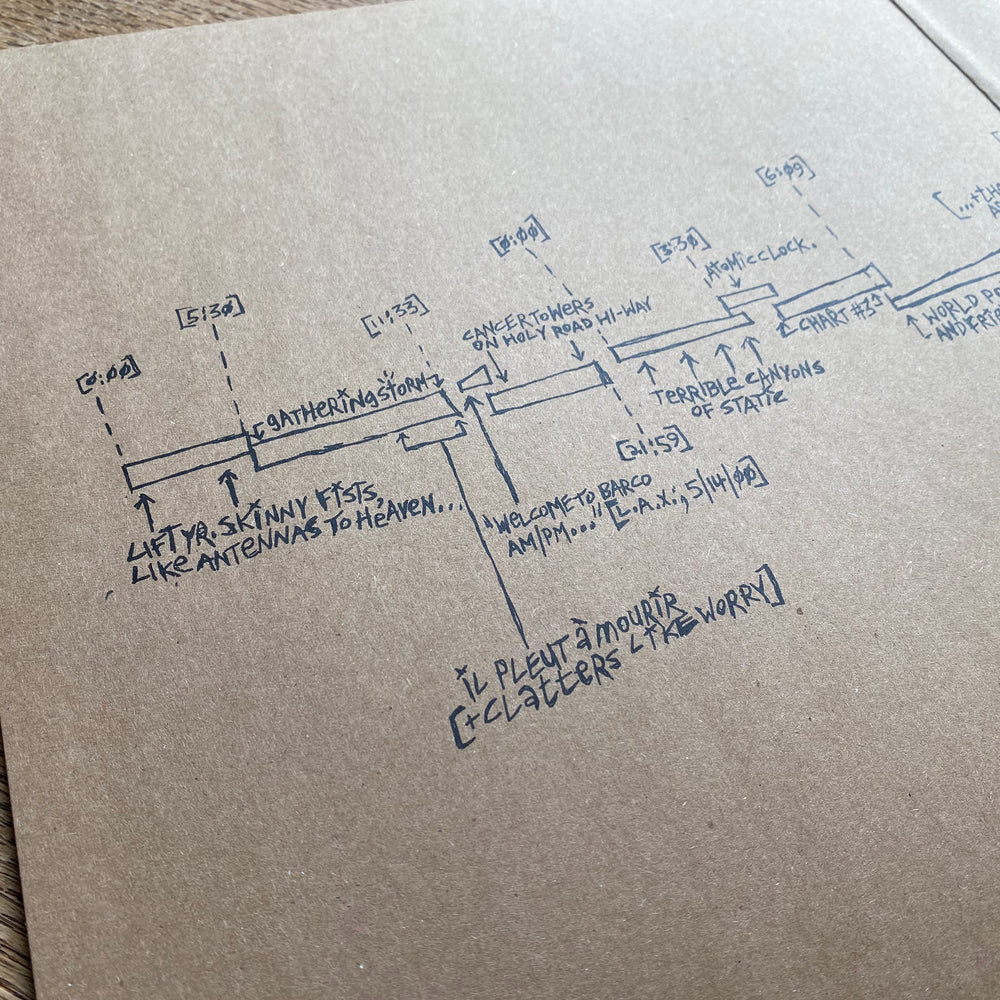 [0:00]
[5:30]
[11:33]
[0:00]
[3:30]
[6:09]
GATHERING STORM
CANCER TOWERS
ON HOLY ROAD HI-WAY
ATOMIC CLOCK.
CHART #3
LIFT YR. SKINNY FISTS,
LIKE ANTENNAS TO HEAVEN...
[21:59]
TERRIBLE CANYONS
OF STATIC
WORLD
"WELCOME TO BARCO
AM/PM..." [L.A.X.; 5/14/00]
IL PLEUT À MOURIR
[+CLATTERS LIKE WORRY]